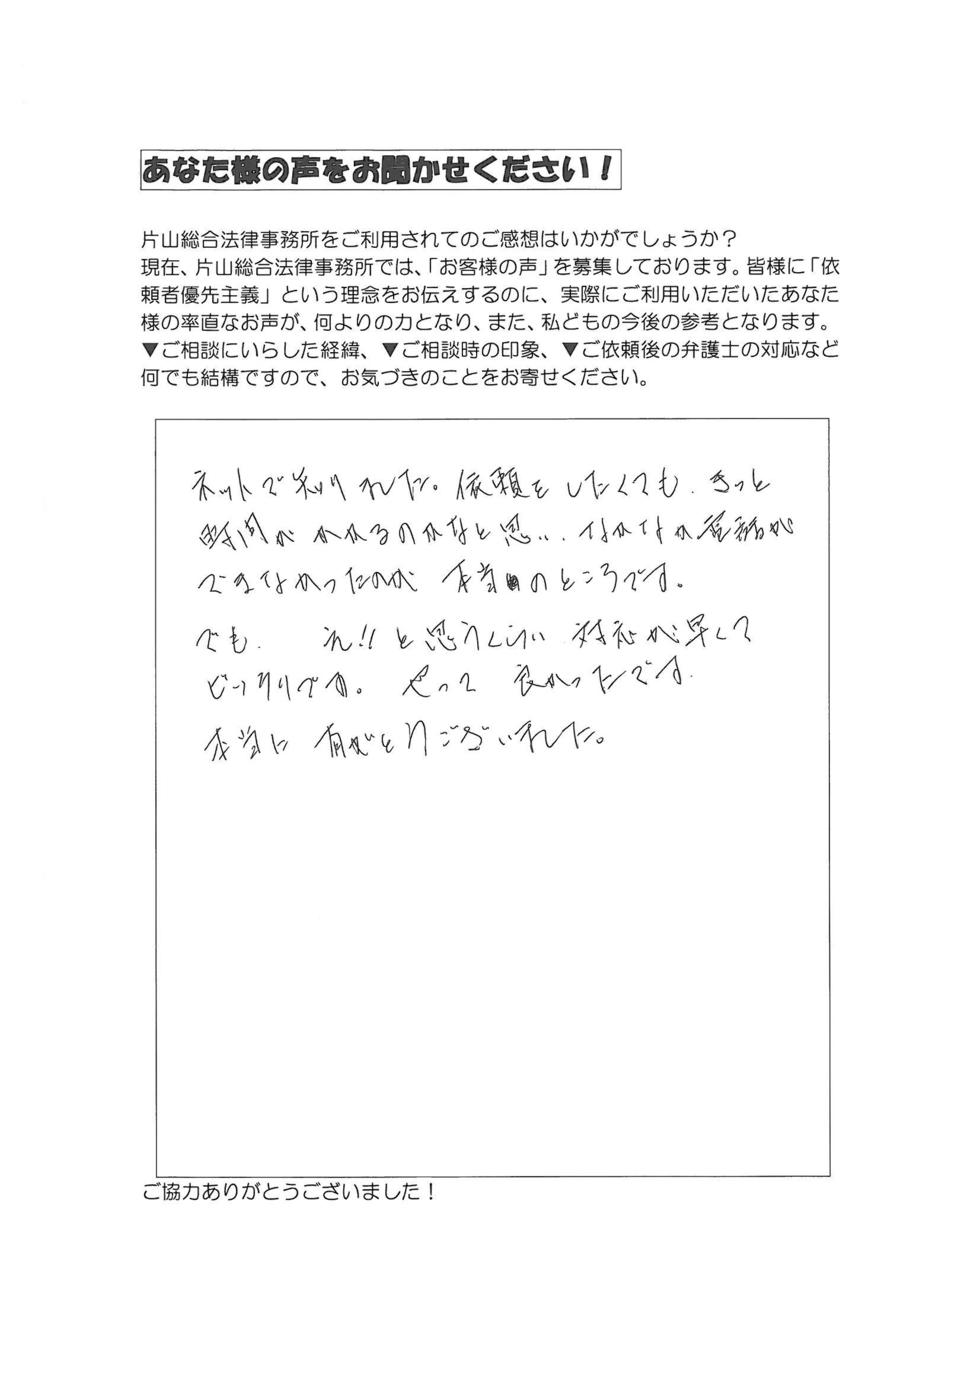 あなた様の声をお聞かせください！
片山総合法律事務所をご利用されてのご感想はいかがでしょうか？
現在、片山総合法律事務所では、「お客様の声」を募集しております。皆様に「依
頼者優先主義」という理念をお伝えするのに、実際にご利用いただいたあなた
様の率直なお声が、何よりの力となり、また、私どもの今後の参考となります。
▼ご相談にいらした経緯、▼ご相談時の印象、▼ご依頼後の弁護士の対応など
何でも結構ですので、お気づきのことをお寄せください。
ネットで知りました。依頼をしたくても、きっと
時間がかかるのかなと思い、なかなか電話が
できなかったのが本当のところです。
でも、え!!と思うくらい対応が早くて
ビックリです。やって良かったです。
本当に有がとうございました。
ご協力ありがとうございました！